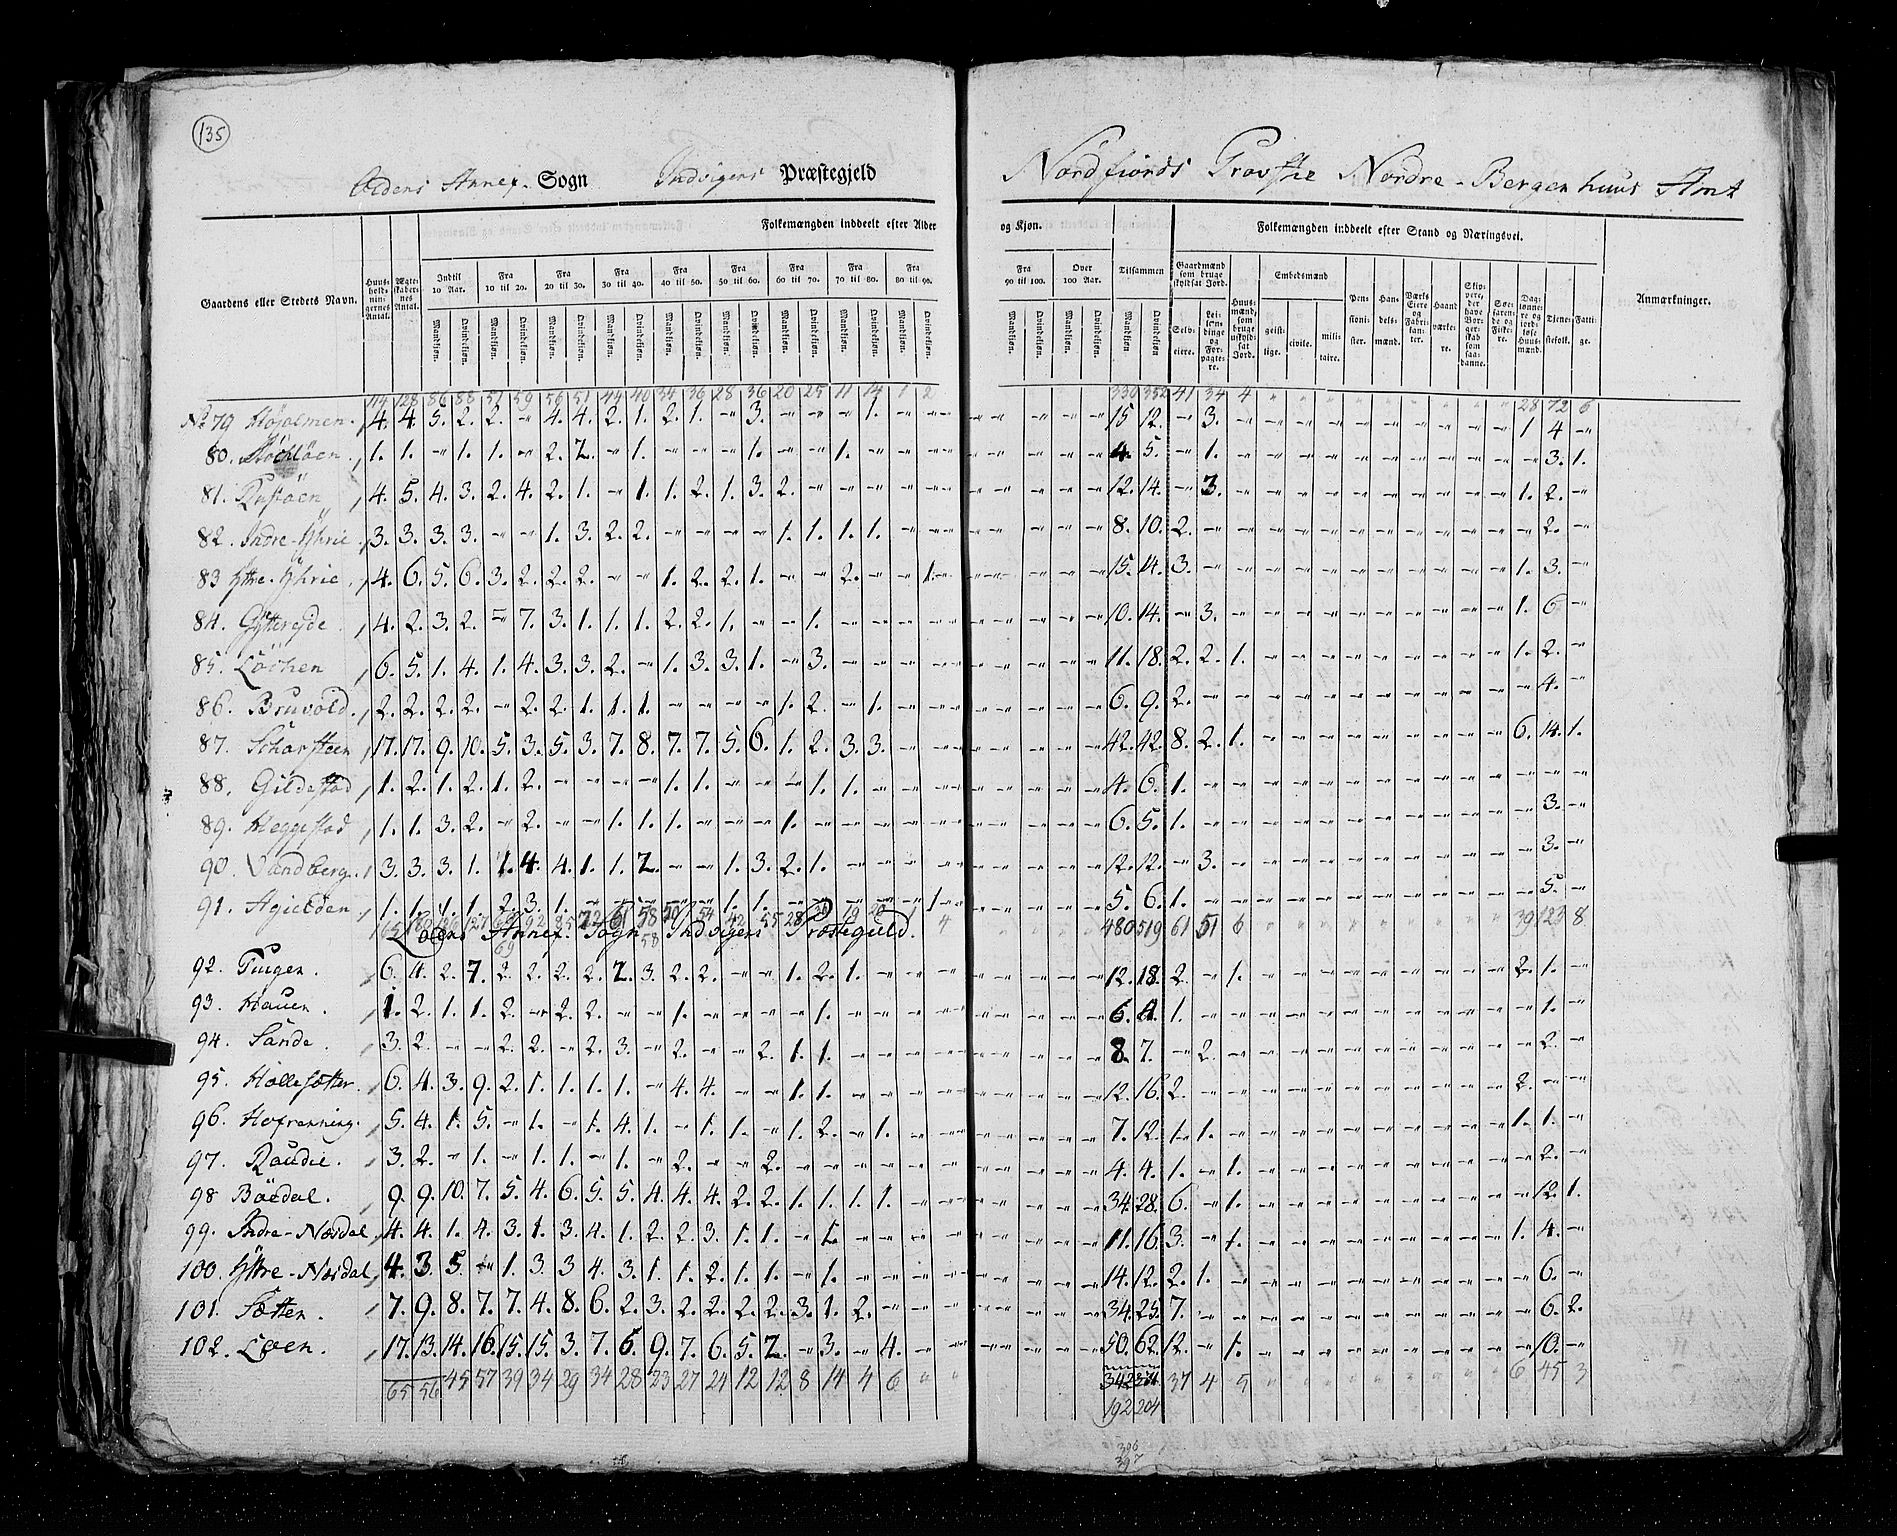 135
Oldens Annex Sogn Indvigens Præstegjeld Nordfiords Provstie Nordre-Bergenhuus Amt
Gaardens eller Stedets Navn.
Huusholdningernes Antal.
Ægteskabernes Antal.
Folkemængden inddeelt efter Alder og Kjøn.
Indtil 10 Aar. Fra 10 til 20. Fra 20 til 30. Fra 30 til 40. Fra 40 til 50. Fra 50 til 60. Fra 60 til 70. Fra 70 til 80. Fra 80 til 90. Fra 90 til 100. Over 100 Aar. Tilsammen
Mandkiøn. Qvindekiøn. Mandkiøn. Qvindekiøn. Mandkiøn. Qvindekiøn. Mandkiøn. Qvindekiøn. Mandkiøn. Qvindekiøn. Mandkiøn. Qvindekiøn. Mandkiøn. Qvindekiøn. Mandkiøn. Qvindekiøn. Mandkiøn. Qvindekiøn. Mandkiøn. Qvindekiøn. Mandkiøn. Qvindekiøn. Mandkiøn Qvindekiøn.
Folkemængden inddeelt efter Stand og Næringsvei.
Gaardmænd som bruge skyldsat Jord.
Selveiere.
Leilændinge og Forpagtere.
Huusmænd, som bruge uskyldsat Jord.
Embedsmænd
geistlige. civile. militaire.
Pensionister.
Handelsmænd.
Værks Eiere og Fabrikanter.
Haandværkere.
Skippere, der have Borgerskab som saadanne.
Søefarende og Fiskere.
Daglønnere og jordløse Huusmænd.
Tjenestefolk.
Fattige.
Anmærkninger.
114 128 56 88 51 59 56 51 44 40 34 36 28 36 20 25 11 14 1 2 330 352 41 34 4 28 72 6
No 79 Højolmen. 4. 4. 5. 2. 2. " 4. 4. 2. 1. 2. 1. " 3. " " " 1. " " " " " " 15 12. " 3. " " " " " " " " " " 1 4 "
80. 1. 1. " 1. 1. " 2. 2. " 1. " " " 1. " " 1. " " " " " " " 4. 5. " 1. " " " " " " " " " " " 3. 1.
81. Rustøen 4. 5. 4. 3. 2. 4. 2. 1. " 1. 1. 2. 1. 3. 2. " " " " " " " " " 12. 14. " 3. " " " " " " " " " " 1. 2. "
82. Indre-Yhrie 3. 3. 3. 3. " " 1. 3. 2. 2. " " " " 1. 1. 1. 1. " " " " " " 8. 10. 2. " " " " " " " " " " " " 2. "
83 Yttre-Yhrie 4. 6. 5. 6. 3. 2. 2. 2. " " 1. 2. 2. 1. " " 2. " " 1. " " " " 15. 14. 3. " " " " " " " " " " " 1. 3. "
84. Gytterejde 4. 2. 3. 2. " 7. 3. 1. 1. 1. 2. 2. 1. " " 1. " " " " " " " " 10. 14. " 3. " " " " " " " " " " 1. 6 "
85. Löchen 6. 5. 1. 4. 1. 4. 3. 3. 2. " 1. 3. 3. 1. " 3. " " " " " " " " 11. 18. 2. 2. 1. " " " " " " " " " 1. 2. "
86. Bruvold. 2. 2. 2. 2. " 2. 2. 1. 1. 1. " " " " 1. 2. " 1. " " " " " " 6. 9. 2. " " " " " " " " " " " " 4. "
87. Scharsteen 17. 17. 9. 10. 5. 3. 5. 3. 7. 8. 7. 7. 5. 6. 1. 2. 3. 3. " " " " " " 42. 42. 8. 2. 1. " " " " " " " " " 6. 14. 1.
88. Gildestad 1. 2. 1. 2. 1. 2. " " " " 1. 1. " " " 1. 1. " " " " " " " 4. 6. 1. " " " " " " " " " " " " " "
89. Heggestad 1. 1. 3. 2. " 2. " " 1. 1. 1. " " " 1. " " " " " " " " " 6. 5. 1. " " " " " " " " " " " " 3. "
90. Vandberg. 3. 3. 3. 1. 1. 4. 4. 1. 1. 2. " " 1. 3. 2. 1. " " " " " " " " 12. 12. " 3. " " " " " " " " " " " 3. "
91. Agielden 1. 1. 1. 1. 2. 3. 1. 1. 1. 1. 5. 6. 1. 5. "
480 519 61 51 6 39 123 8
Loens Annex Sogn Indvigens Præstegield.
92. Tingen. 6. 4. 2. 7. 2. 2. 2. 2. 2. 3. 2. 2. " " 1. 2. 1. " " " " " " " 12. 18. 2. " 1. " " " " " " " " " 2. 1. "
93. Hauen. 1. 2. 1. 1. 2. " 2. 2. " " 1. " " " " 1. " " " " " " " " 6. 4. 1. " " " " " " " " " " " " 1. "
94. Sande. 3. 2. " " 2. 2. " 2. 3. " 2. " " 2. 1. 1. " " " " " " " " 8. 7. " 2. " " " " " " " " " " " 2. "
95. Hollesætter. 6. 4. 3. 9. 2. 1. 1. 1. 1. " 4. 4. " " 1. 1. " " " " " " " " 12. 16. 2. " " " " " " " " " " " 2. " "
96. Hofrenning. 5. 4. 1. 5. " 1. " 1. 4. 1. " 1. 1. " 1. 2. " 1. " " " " " " 7. 12. 1. 1. " " " " " " " " " " 1. 1. "
97. Raudie. 3. 2. " 1. " 1. 1. " 1. " 2. " " 2. " " " " " " " " " " 4. 4. 1. " 1. " " " " " " " " " " 2. "
98 Bödal. 9. 9. 10. 7. 5. 4. 6. 5. 5. 4. 4. 4. 2. 2. 1. 1. 1. 1. " " " " " " 34. 28. 6. " 1. " " " " " " " " " " 12. 1.
99. Indre-Nesdal 4. 4. 1. 4. 3. 1. 3. 4. 1. 2. 2. 3. 1. 1. " 1. " " " " " " " " 11. 16. 3. " 1. " " " " " " " " " 1. 4. "
100. Yttre-Nesdal 4. 3. 5. " 1. 3. 3 4. 3. 1. 1. 2. 1. 1. " 1. " " " " " " " " 14. 12. 2. 1. " " " " " " " " " " " 6. "
101. Sætten. 7. 9. 8. 7. 7. 4. 8. 6. 2. 3. 2. 2. 2. 2. 3. 1. 2. " " " " " " " 34. 25. 7. " " " " " " " " " " " " 6. 2.
102. Loen. 17. 13. 14. 16. 15. 15. 3. 7. 6. 9. 7. 6. 5. 2. " 3. " 4. " " " " " " 50. 62. 12. " 1. " " " " " " " " " " 10. "
65 56 45 57 39 34 29 34 28 23 27 24 12 12 8 14 4 6 " " 37 4 5 6 45 3
192 204
396